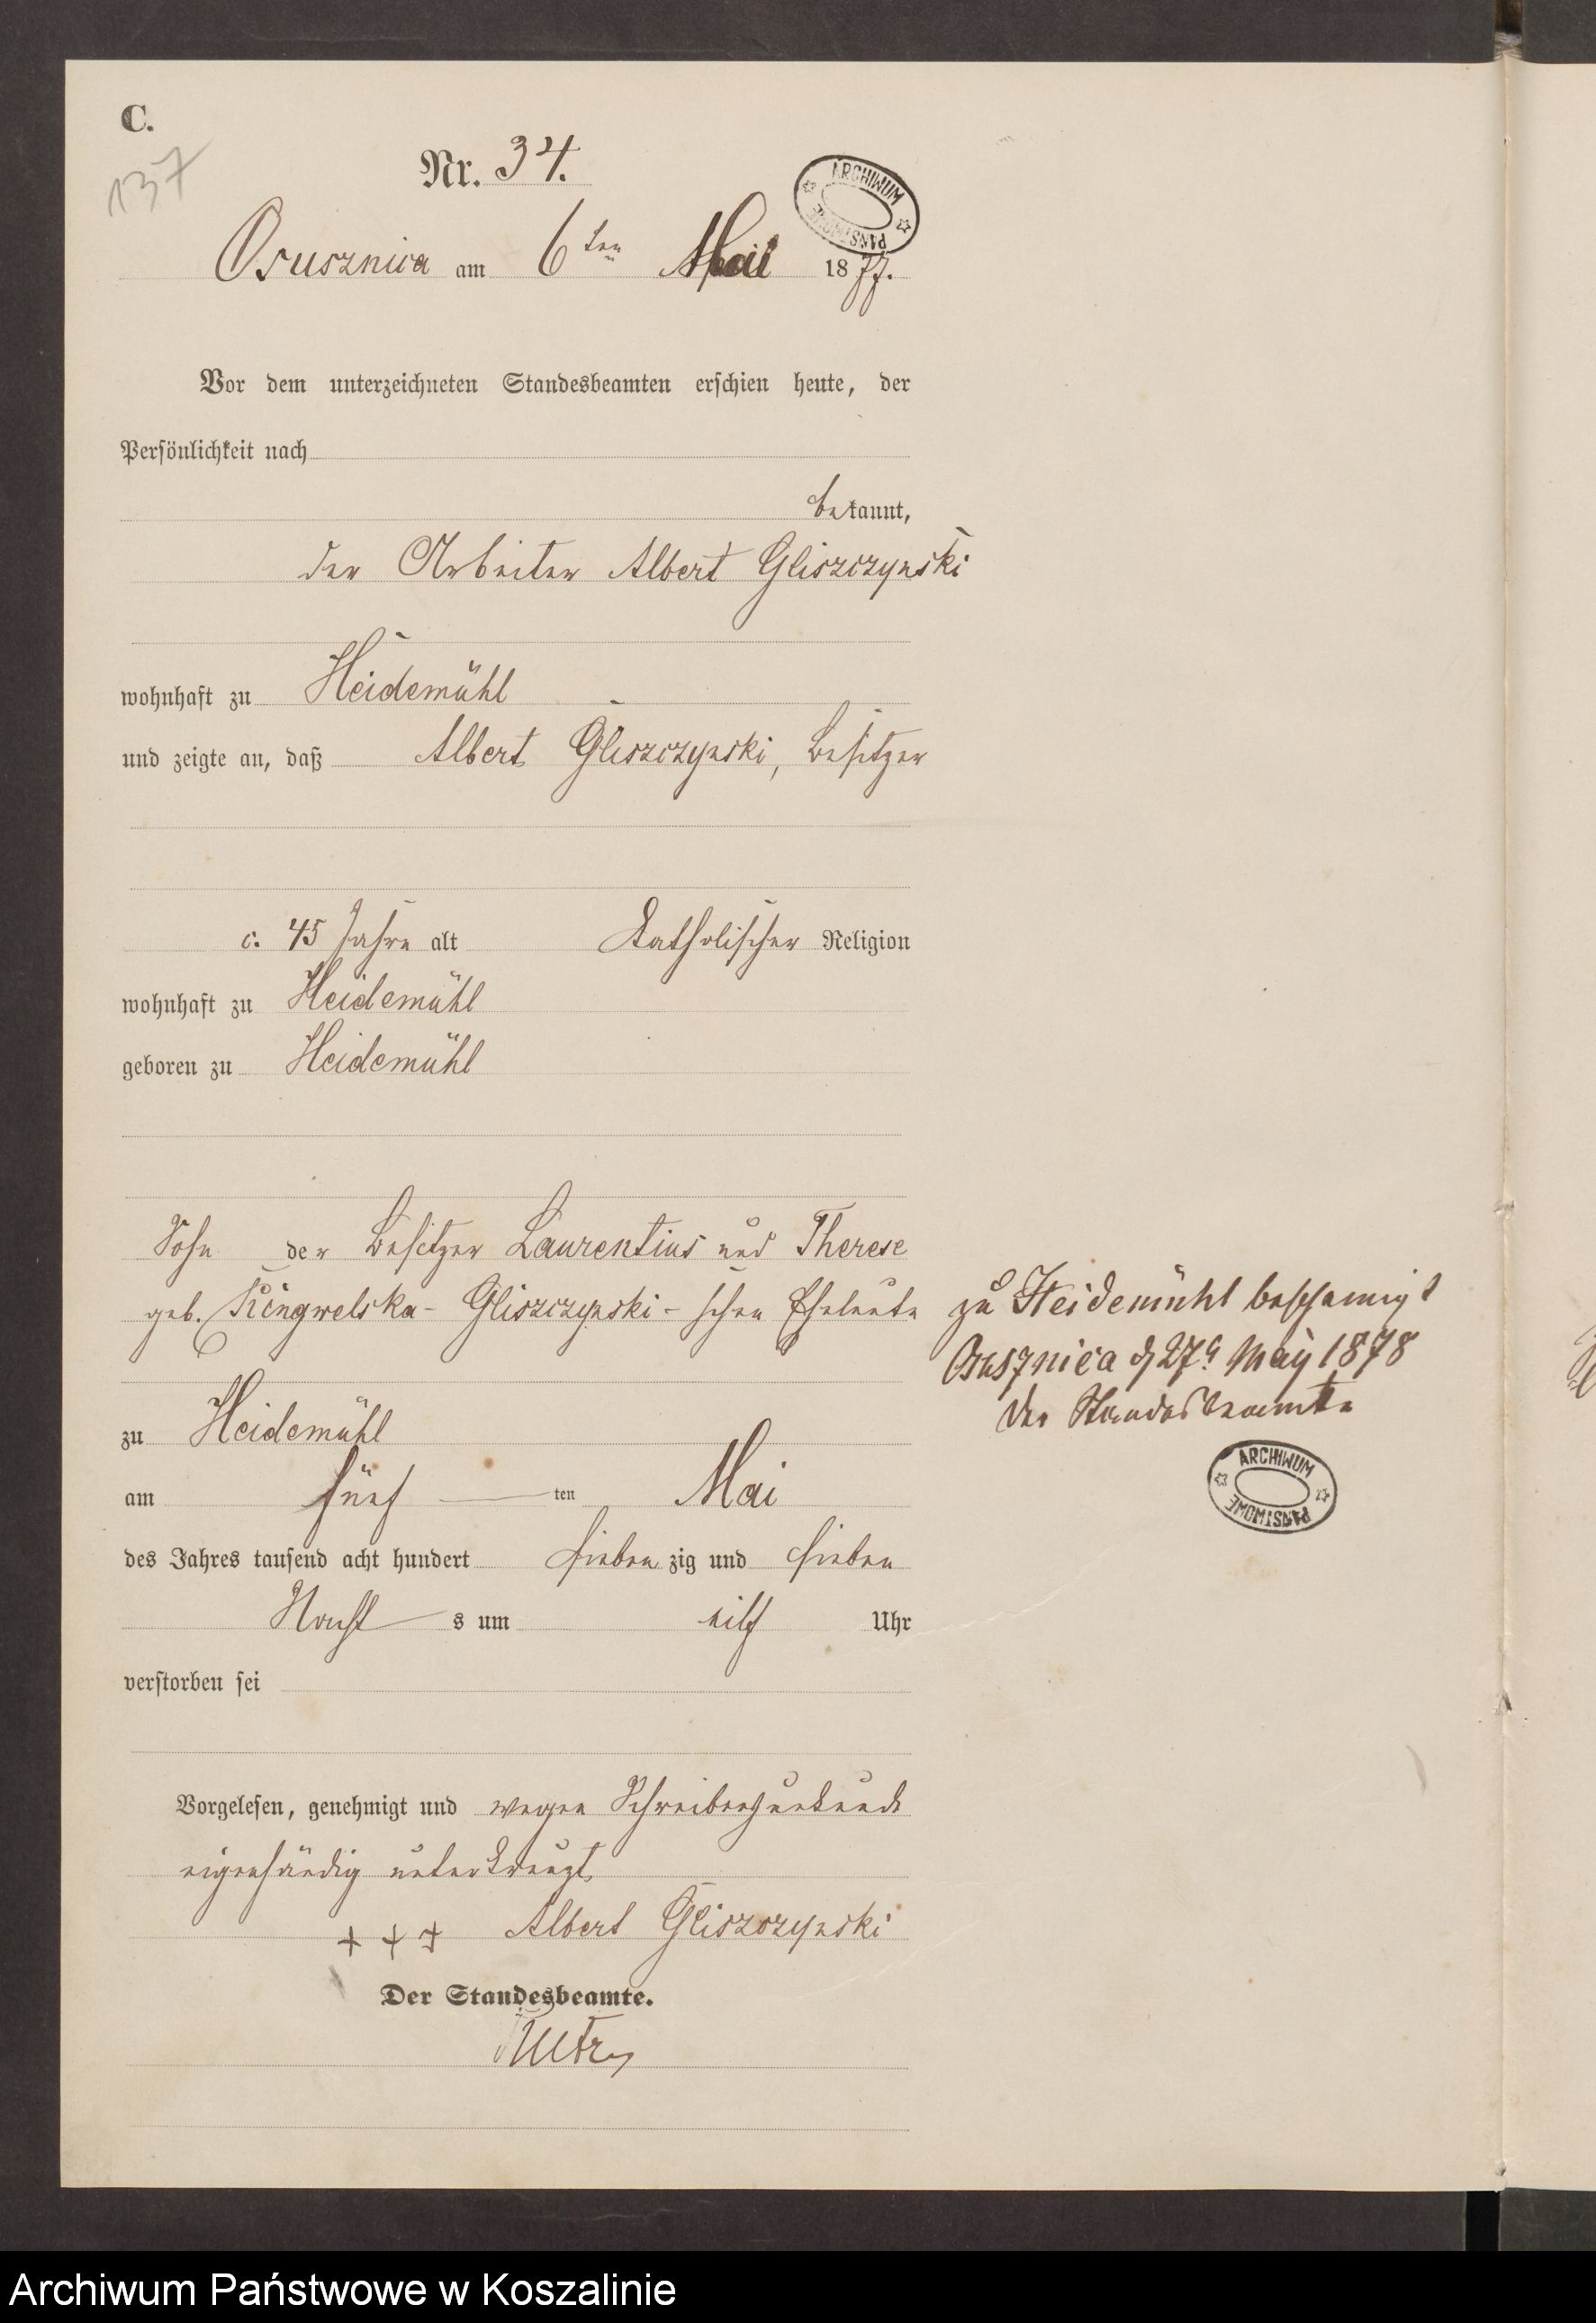 C.
137
Nr. 34.
ARCHIWUM PAŃSTWOWE
Osusznica am 6ten Mai 1877.
Vor dem unterzeichneten Standesbeamten erschien heute, der
Persönlichkeit nach
bekannt,
der Arbeiter Albert Gliszczynski
wohnhaft zu Heidemühl
und zeigte an, daß Albert Gliszczynski, Besitzer
c. 45 Jahre alt Katholischer Religion
wohnhaft zu Heidemühl
geboren zu Heidemühl
Sohn der Besitzer Laurentius und Therese
geb. Gliszczynski-schen Eheleute zu Heidemühl
Osusznica d 27 May 1878
zu Heidemühl
Der Standesbeamte
ARCHIWUM PAŃSTWOWE
am fünf ten Mai
des Jahres tausend acht hundert sieben zig und sieben
Nacht s um eilf Uhr
verstorben sei
Vorgelesen, genehmigt und wegen Schreibensunkunde
eigenhändig unterkreuzt
+ + + Albert Gliszczynski
Der Standesbeamte.
Archiwum Państwowe w Koszalinie